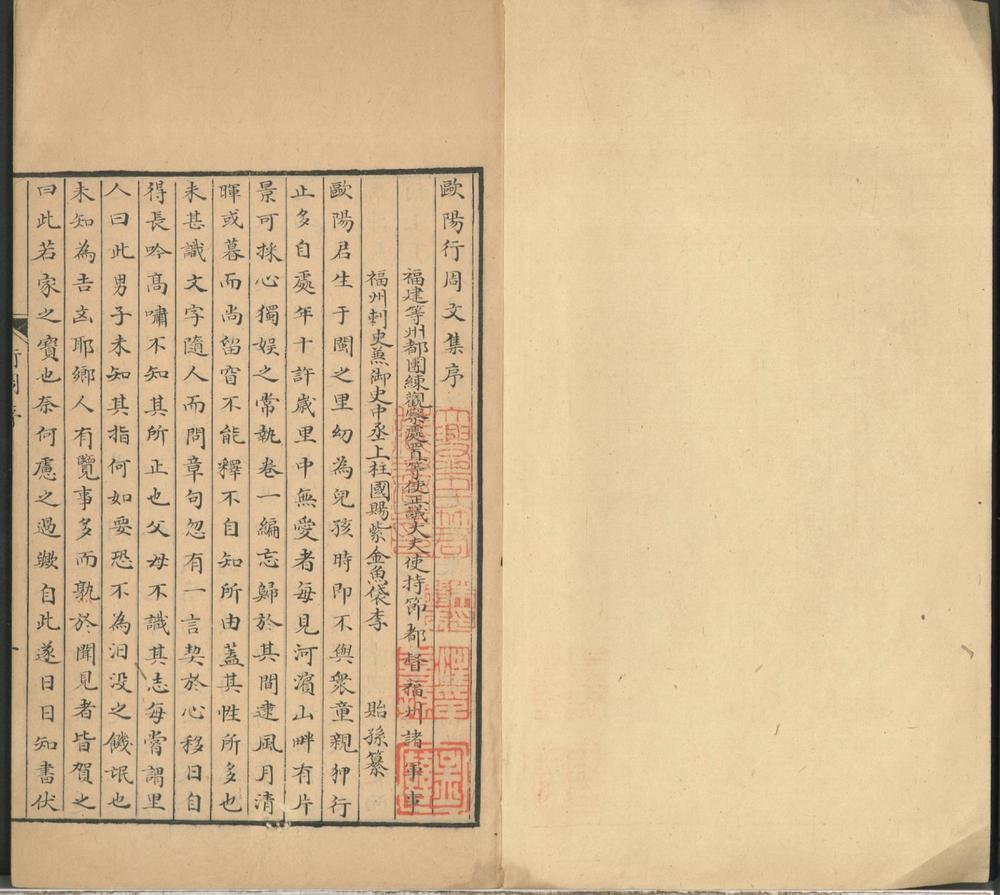 歐陽行周文集序
福建等州都團練觀察處置等使正議大夫使持節都督福州諸軍事
福州刺史蕪御史中丞上柱國賜紫金魚袋李 貽孫纂
歐陽君生于閩之里幼為兒孩時即不與衆童親狎行
止多自處年十許歲里中無愛者每見河濱山畔有片
景可採心獨娛之常執卷一編忘歸於其間逮風月清
暉或暮而尚留窅不能釋不自知所由蓋其性所多也
未甚識文字隨人而問章句忽有一言契於心移日自
得長吟高嘯不知其所止也父母不識其志每嘗謂里
人曰此男子未知其指何如要恐不為汩没之饑氓也
未知為吉㐫耶鄉人有覽事多而熟於聞見者皆賀之
曰此若家之寶也奈何慮之過歟自此遂日日知書伏
行周序
一